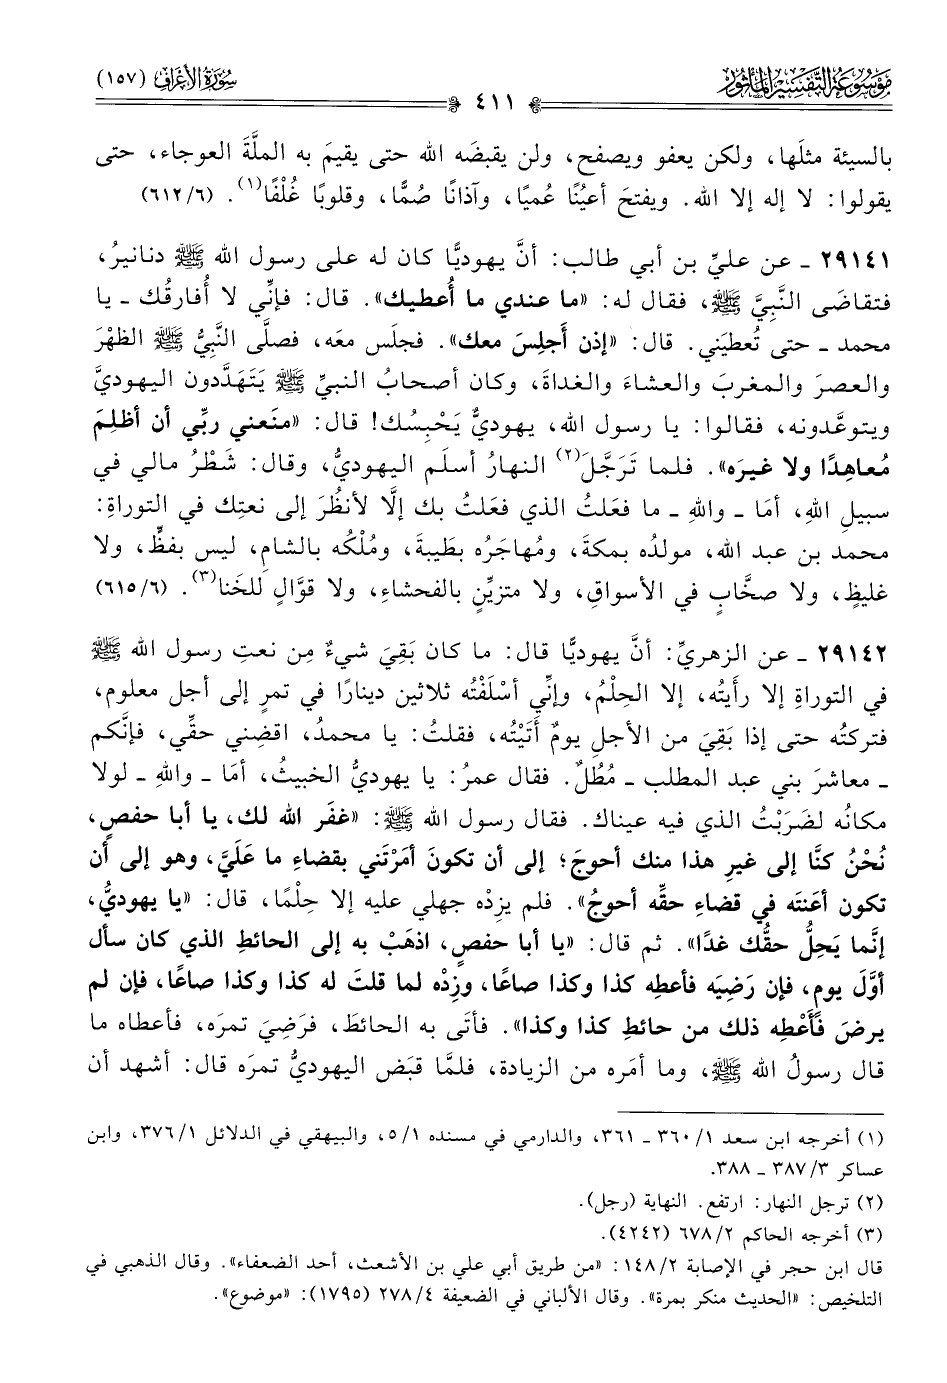 مَوْسُوعَة التَّفْسِيْر المَأثُور
٤١١
سُورَةُ الأَعْرَاف (١٥٧)
بالسيئة مثلَها، ولكن يعفو ويصفح، ولن يقبضَه الله حتى يقيمَ به الملَّةَ العوجاء، حتى
يقولوا: لا إله إلا الله. ويفتحَ أعيُنًا عميًا، وآذانًا صُمًّا، وقلوبًا غُلْفًا(١). (٦/٦١٢)
٢٩١٤١ ـ عن عليِّ بن أبي طالب: أنَّ يهوديًّا كان له على رسول الله ﷺ دنانيرُ،
فتقاضَى النَّبِيَّ ﷺ، فقال له: «ما عندي ما أُعطيك». قال: فإنِّي لا أُفارقُك ـ يا
محمد ـ حتى تُعطيَني. قال: «إذن أَجلِسَ معك». فجلَس معَه، فصلَّى النَّبيُّ ﷺ الظهْرَ
والعصرَ والمغربَ والعشاءَ والغداةَ، وكان أصحابُ النبيِّ ﷺ يَتَهَدَّدون اليهوديَّ
ويتوعَّدونه، فقالوا: يا رسول الله، يهوديٌّ يَحْبِسُك! قال: «منَعني ربِّي أن أظلِمَ
مُعاهِدًا ولا غيرَه». فلما تَرَجَّلَ(٢) النهارُ أسلَم اليهوديُّ، وقال: شَطْرُ مالي في
سبيلِ اللهِ، أمَا ـ واللهِ ـ ما فعَلتُ الذي فعَلتُ بك إلَّا لأنظُرَ إلى نعتِك في التوراةِ:
محمد بن عبد الله، مولدُه بمكةَ، ومُهاجَرُه بطَيبةَ، ومُلْكُه بالشامِ، ليس بفظٍّ، ولا
غليظٍ، ولا صخَّابٍ في الأسواقِ، ولا متزيِّنٍ بالفحشاءِ، ولا قوَّالٍ للخَنا(٣). (٦/٦١٥)
٢٩١٤٢ ـ عن الزهريِّ: أنَّ يهوديًّا قال: ما كان بَقِيَ شيءٌ مِن نعتِ رسول الله ﷺ
في التوراةِ إلا رأَيتُه، إلا الحِلْمُ، وإنِّي أسْلَفْتُه ثلاثين دينارًا في تمرٍ إلى أجل معلوم،
فتركتُه حتى إذا بَقِيَ من الأجلِ يومٌ أتَيْتُه، فقلتُ: يا محمدُ، اقضِني حقِّي، فإنَّكم
ـ معاشرَ بني عبد المطلب ـ مُطُلٌ. فقال عمرُ: يا يهوديُّ الخبيثُ، أمَا ـ واللهِ ـ لولا
مكانُه لضرَبْتُ الذي فيه عيناك. فقال رسول الله ﷺ: «غفَر الله لك، يا أبا حفصٍ،
نُحْنُ كنَّا إلى غيرِ هذا منك أحوجَ؛ إلى أن تكونَ أمَرْتَني بقضاءِ ما عَلَيَّ، وهو إلى أن
تكون أعَنتَه في قضاءِ حقِّه أحوجُ». فلم يزِدْه جهلي عليه إلا حِلْمًا، قال: «يا يهوديُّ،
إنَّما يَحِلُّ حقُّك غدًا». ثم قال: «يا أبا حفصٍ، اذهَبْ به إلى الحائطِ الذي كان سأل
أوَّلَ يومٍ، فإن رَضِيَه فأعطِه كذا وكذا صاعًا، وزِدْه لما قلتَ له كذا وكذا صاعًا، فإن لم
يرضَ فَأَعْطِه ذلك من حائطِ كذا وكذا». فأتَى به الحائطَ، فرَضِيَ تمرَه، فأعطاه ما
قال رسولُ الله ﷺ، وما أمَره من الزيادة، فلمَّا قبَض اليهوديُّ تمرَه قال: أشهد أن
(١) أخرجه ابن سعد ١/٣٦٠ ـ ٣٦١، والدارمي في مسنده ١/٥، والبيهقي في الدلائل ١/٣٧٦، وابن
عساكر ٣/٣٨٧ ـ ٣٨٨.
(٢) ترجل النهار: ارتفع. النهاية (رجل).
(٣) أخرجه الحاكم ٢/٦٧٨ (٤٢٤٢).
قال ابن حجر في الإصابة ٢/١٤٨: «من طريق أبي علي بن الأشعث، أحد الضعفاء». وقال الذهبي في
التلخيص: «الحديث منكر بمرة». وقال الألباني في الضعيفة ٤/٢٧٨ (١٧٩٥): «موضوع».